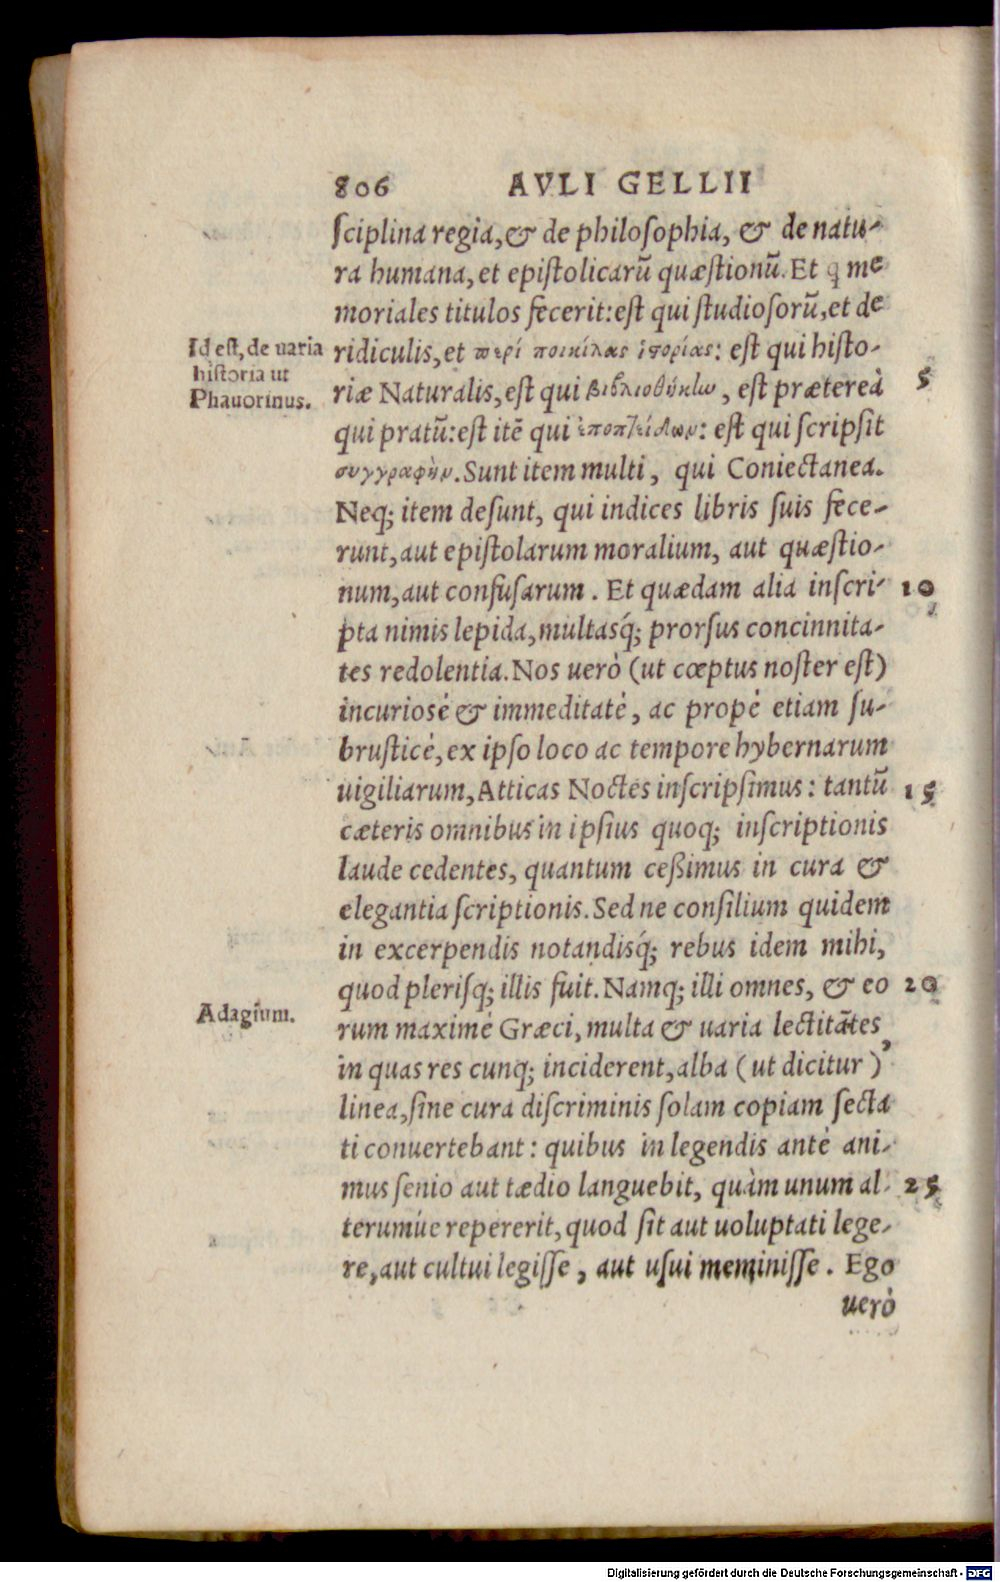 806 AVLI GELLII
ſciplina regia, & de philoſophia, & de natu-
ra humana, et epiſtolicarũ quæſtionũ. Et q me
moriales titulos fecerit: eſt qui ſtudioſorũ, et de
Id eſt, de uaria
hiſtoria ut
Phauorinus.
ridiculis, et περί ποικίλας ἱστορίας: eſt qui hiſto-
riæ Naturalis, eſt qui βιβλιοθήκην, eſt prætereà
5
qui pratũ: eſt itẽ qui : eſt qui ſcripſit
συγγραφὴν. Sunt item multi, qui Coniectanea.
Neq; item deſunt, qui indices libris ſuis fece-
runt, aut epiſtolarum moralium, aut quæſtio-
num, aut confuſarum. Et quædam alia inſcri-
10
pta nimis lepida, multasq́; prorſus concinnita-
tes redolentia. Nos uerò (ut cœptus noſter eſt)
incurioſé & immeditaté, ac propé etiam ſu-
bruſticé, ex ipſo loco ac tempore hybernarum
uigiliarum, Atticas Noctes inſcripſimus: tantũ
15
cæteris omnibus in ipſius quoq; inſcriptionis
laude cedentes, quantum ceßimus in cura &
elegantia ſcriptionis. Sed ne conſilium quidem
in excerpendis notandisq́; rebus idem mihi,
quod pleriſq; illis fuit. Namq; illi omnes, & eo
20
Adagium.
rum maximé Græci, multa & uaria lectitãtes,
in quas res cunq; inciderent, alba (ut dicitur)
linea, ſine cura diſcriminis ſolam copiam ſecta
ti conuertebant: quibus in legendis anté ani-
mus ſenio aut tædio languebit, quàm unum al-
25
terumúe repererit, quod ſit aut uoluptati lege-
re, aut cultui legiſſe, aut uſui meminiſſe. Ego
uerò
Digitalisierung gefördert durch die Deutsche Forschungsgemeinschaft - DFG